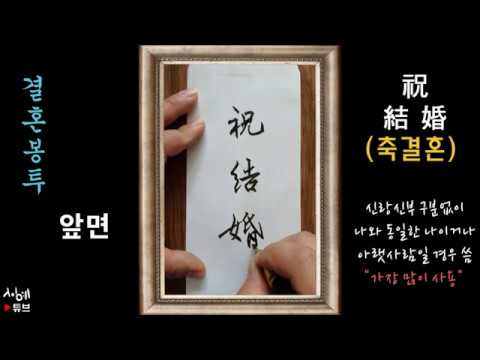 결혼봉투
앞면
祝
結
婚
祝
結婚
(축결혼)
신랑신부 구분없이
나와 동일한 나이거나
아랫사람일 경우 씀
"가장 많이 사용"
서예
튜브